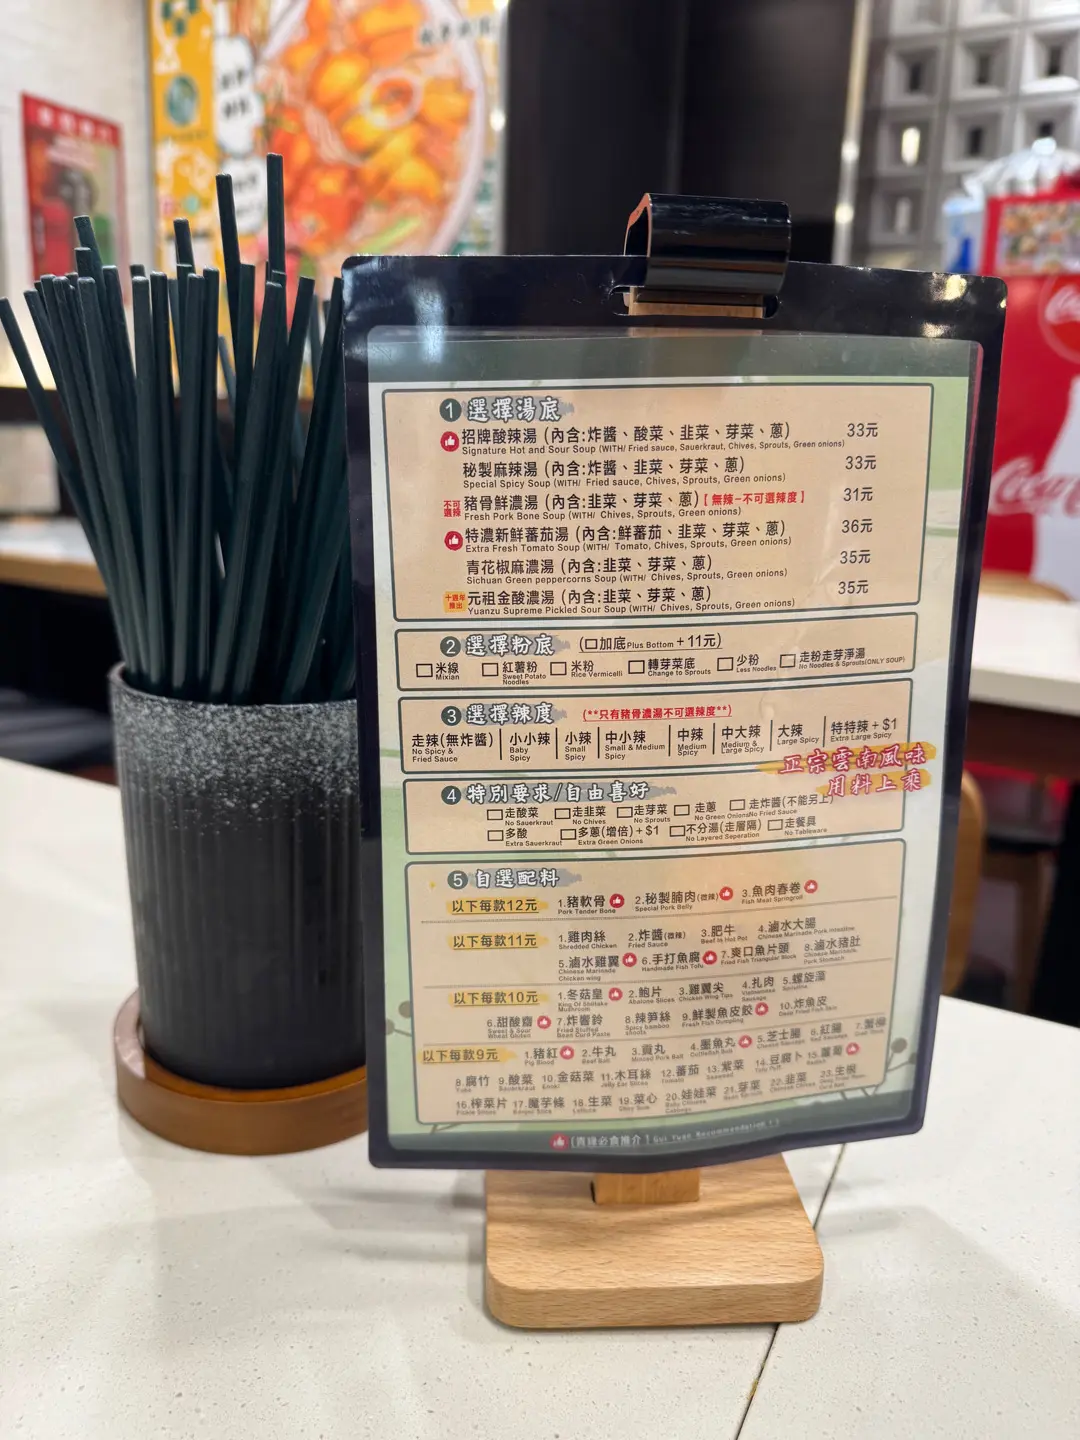 1 選擇湯底
招牌酸辣湯 (內含:炸醬、酸菜、韭菜、芽菜、蔥) 33元
Signature Hot and Sour Soup (WITH/ Fried sauce, Sauerkraut, Chives, Sprouts, Green onions)
秘製麻辣湯 (內含:炸醬、韭菜、芽菜、蔥) 33元
Special Spicy Soup (WITH/ Fried sauce, Chives, Sprouts, Green onions)
不可選辣 豬骨鮮濃湯 (內含:韭菜、芽菜、蔥)【無辣-不可選辣度】 31元
Fresh Pork Bone Soup (WITH/ Chives, Sprouts, Green onions)
特濃新鮮蕃茄湯 (內含:鮮蕃茄、韭菜、芽菜、蔥) 36元
Extra Fresh Tomato Soup (WITH/ Tomato, Chives, Sprouts, Green onions)
青花椒麻濃湯 (內含:韭菜、芽菜、蔥) 35元
Sichuan Green peppercorns Soup (WITH/ Chives, Sprouts, Green onions)
十週年推出 元祖金酸濃湯 (內含:韭菜、芽菜、蔥) 35元
Yuanzu Supreme Pickled Sour Soup (WITH/ Chives, Sprouts, Green onions)
2 選擇粉底 (□加底Plus Bottom + 11元)
□米線 □紅薯粉 □米粉 □轉芽菜底 □少粉 □走粉走芽淨湯
Mixian Sweet Potato Noodles Rice Vermicelli Change to Sprouts Less Noodles No Noodles & Sprouts(ONLY SOUP)
3 選擇辣度 (**只有豬骨濃湯不可選辣度**)
走辣(無炸醬) 小小辣 小辣 中小辣 中辣 中大辣 大辣 特特辣 + $1
No Spicy & Fried Sauce Baby Spicy Small Spicy Small & Medium Spicy Medium Spicy Medium & Large Spicy Large Spicy Extra Large Spicy
正宗雲南風味
用料上乘
4 特別要求/自由喜好
□走酸菜 □走韭菜 □走芽菜 □走蔥 □走炸醬(不能另上)
No Sauerkraut No Chives No Sprouts No Green Onions No Fried Sauce
□多酸 □多蔥(增倍) + $1 □不分湯(走層隔) □走餐具
Extra Sauerkraut Extra Green Onions No Layered Seperation No Tableware
5 自選配料
以下每款12元 1.豬軟骨 2.秘製腩肉(微辣) 3.魚肉春卷
Pork Tander Bone Special Pork Belly Fish Meat Springroll
以下每款11元 1.雞肉絲 2.炸醬(微辣) 3.肥牛 4.滷水大腸
Shredded Chicken Fried Sauce Beef in Hot Pot Chinese Marinade Pork Intestine
5.滷水雞翼 6.手打魚腐 7.爽口魚片頭 8.滷水豬肚
Chinese Marinade Chicken wing Handmade Fish Tofu Fried Fish Triangular Block Chinese Marinade Pork Stomach
以下每款10元 1.冬菇皇 2.鮑片 3.雞翼尖 4.扎肉 5.螺旋藻
King Of Shiitake Mushroom Abalone Slices Chicken Wing Tips Vietnamese Sausage Spirulina
6.甜酸齋 7.炸響鈴 8.辣筍絲 9.鮮製魚皮餃 10.炸魚皮
Sweet & Sour Wheat Gluten Fried Stuffed Bean Curd Paste Spicy bamboo shoots Fresh Fish Dumpling Deep Fried Fish Skin
以下每款9元 1.豬紅 2.牛丸 3.貢丸 4.墨魚丸 5.芝士腸 6.紅腸 7.蟹柳
Pig Blood Beef Ball Minced Pork Ball Cuttlefish Ball Cheese Sausage Red Sausage
8.腐竹 9.酸菜 10.金菇菜 11.木耳絲 12.蕃茄 13.紫菜 14.豆腐卜 15.蘿蔔
Yuba Sauerkraut Enoki Jelly Ear Slices Tomato Seaweed Tofu Puff Radish
16.榨菜片 17.魔芋條 18.生菜 19.菜心 20.娃娃菜 21.芽菜 22.韭菜 23.生根
Pickle Slices Konjac Slice Lettuce Choy Sum Baby Chinese Cabbage Bean Sprouts Chinese Chives